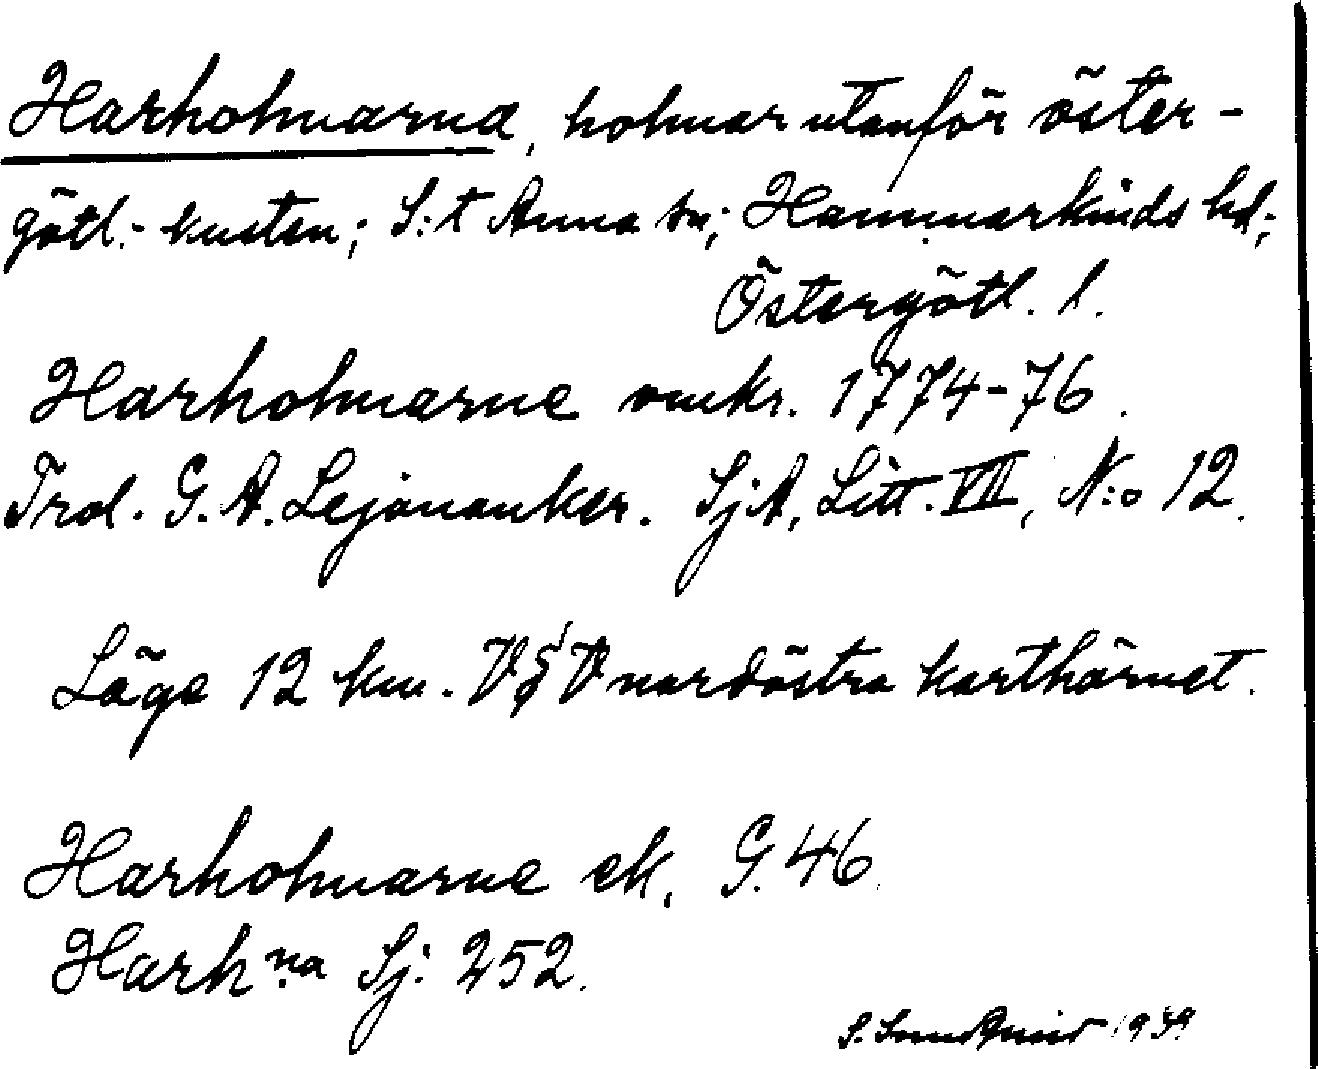 Harholmarna, holmar utanför öster-
götl.-kusten; S:t Anna sn; Hammarkinds hd;
Östergötl. l.
Harholmarne omkr. 1774-76.
Trol. G. A. Lejonanker. SjA, Litt. VII, N:o 12.
Läge 12 km. V nordöstra karthörnet.
Harholmarne ek. G. 46.
Harh:na Sj: 252.
S. Sundqvist 1939